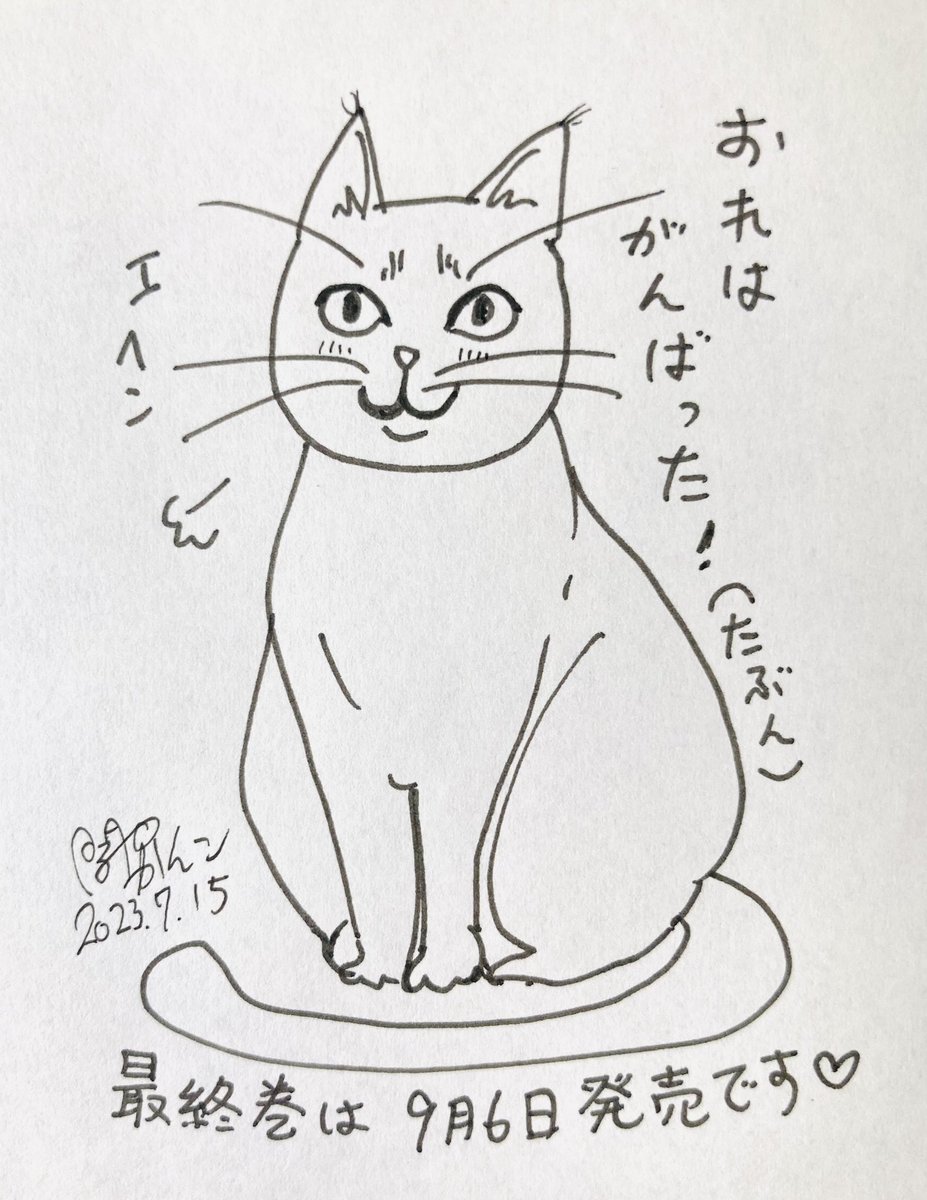 おれは
がんばった!
(たぶん)
エヘン
2023.7.15
最終巻は 9月6日発売です♡